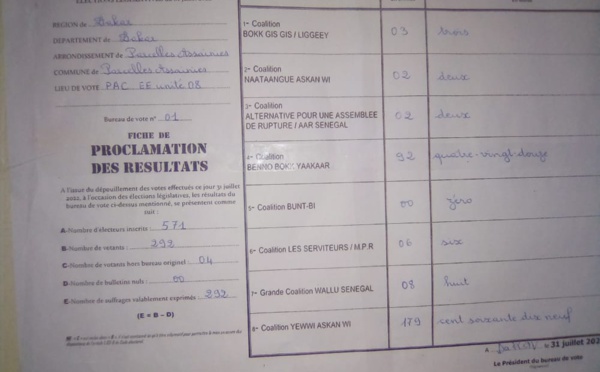 REGION de Dakar
DEPARTEMENT de Dakar
ARRONDISSEMENT de Parcelles Assainies
COMMUNE de Parcelles Assainies
LIEU DE VOTE PAC EE unité 08
Bureau de vote n° 01
FICHE DE
PROCLAMATION
DES RESULTATS
A l'issue du dépouillement des votes effectués ce jour 31 juillet
2022, à l'occasion des élections législatives, les résultats du
bureau de vote ci-dessus mentionné, se présentent comme
suit :
A-Nombre d'électeurs inscrits : 571
B-Nombre de votants : 292
C-Nombre de votants hors bureau originel : 04
D-Nombre de bulletins nuls : 00
E-Nombre de suffrages valablement exprimés : 292
(E = B – D)
1- Coalition
BOKK GIS GIS / LIGGEEY 03 trois
2- Coalition
NAATAANGUE ASKAN WI 02 deux
3- Coalition
ALTERNATIVE POUR UNE ASSEMBLEE
DE RUPTURE / AAR SENEGAL 02 deux
4- Coalition
BENNO BOKK YAAKAAR 92 quatre-vingt-douze
5- Coalition BUNT-BI 00 zéro
6- Coalition LES SERVITEURS / M.P.R 06 six
7- Grande Coalition WALLU SENEGAL 08 huit
8- Coalition YEWWI ASKAN WI 179 cent soixante dix neuf
A Dakar, le 31 juillet 202
Le Président du bureau de vote